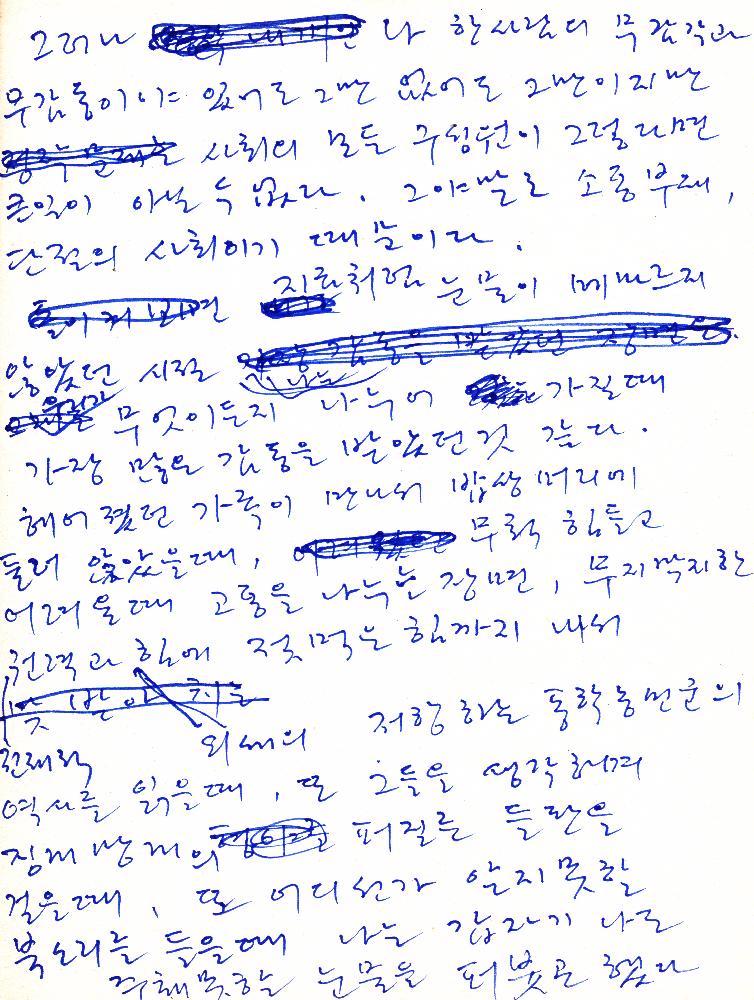 그러나 나 한사람의 무감각과
무감동이야 있어도 그만 없어도 그만이지만
사회의 모든 구성원이 그렇다면
큰일이 아닐 수 없다. 그야말로 소통부재,
단절의 사회이기 때문이다.
지금처럼 눈물이 메마르지
않았던 시절 나는
무엇이든지 나누어 가질때
가장 많은 감동을 받았던것 같다.
헤어졌던 가족이 만나서 밥상머리에
둘러 앉았을때, 무척 힘들고
어려울때 고통을 나누는 장면, 무지막지한
권력과 힘에 젖먹는 힘까지 내서
외세의 저항하는 동학농민군의
역사를 읽을때, 또 그들을 생각하며
징게 맹게의 퍼질른 들판을
걸을때, 또 어디선가 알지못할
북소리를 들을때 나는 갑자기 나도
주체못할 눈물을 퍼붓곤 했다